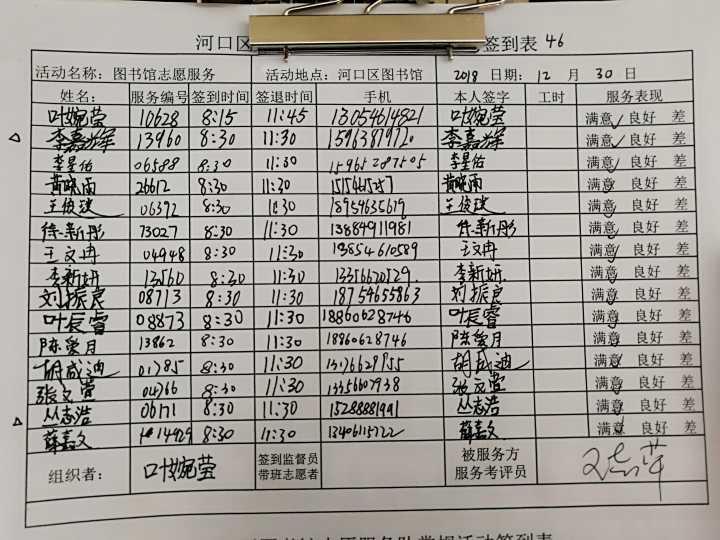 河口区 签到表 46
活动名称：图书馆志愿服务 活动地点：河口区图书馆 2018 日期：12 月 30 日
姓名： 服务编号 签到时间 签退时间 手机 本人签字 工时 服务表现
叶婉莹 10628 8:15 11:45 13054614821 叶婉莹 满意✓ 良好 差
李嘉辉 13960 8:30 11:30 李嘉辉 满意✓ 良好 差
李星佑 06588 8:30 11:30 15965287505 李星佑 满意✓ 良好 差
黄晓雨 26612 8:30 11:30 黄晓雨 满意✓ 良好 差
王俊琰 06372 8:30 18954635619 王俊琰 满意✓ 良好 差
徐新彤 73027 8:30 11:30 13884911981 徐新彤 满意✓ 良好 差
王文冉 04948 8:30 11:30 13854610589 王文冉 满意✓ 良好 差
李新妍 13560 8:30 11:30 13356620529 李新妍 满意✓ 良好 差
刘振良 08713 8:30 11:30 18754655863 刘振良 满意✓ 良好 差
叶辰睿 08873 8:30 11:30 18860628746 叶辰睿 满意✓ 良好 差
陈爱月 13862 8:30 11:30 18960628746 陈爱月 满意✓ 良好 差
胡成迪 01785 8:30 11:30 胡成迪 满意✓ 良好 差
张文萱 04766 8:30 11:30 张文萱 满意✓ 良好 差
丛志浩 06171 8:30 11:30 15288881991 丛志浩 满意✓ 良好 差
薛嘉文 14929 8:30 11:30 13406115222 薛嘉文 满意✓ 良好 差
组织者： 叶婉莹 签到监督员 被服务方
带班志愿者 服务考评员